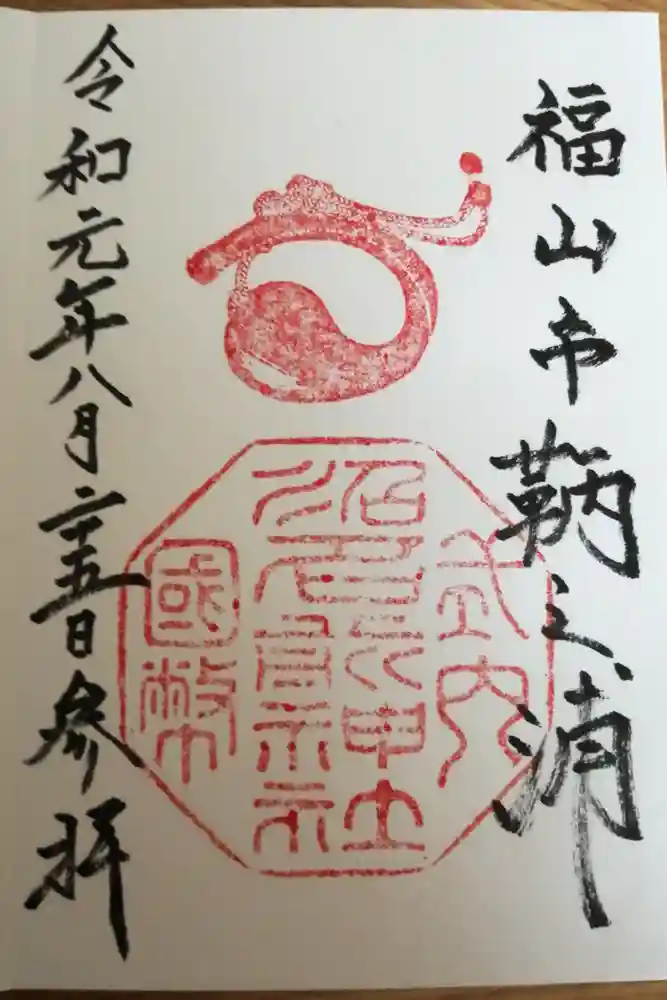 福山市鞆之浦
式内
沼名前神社
國幣
令和元年八月二十五日参拝